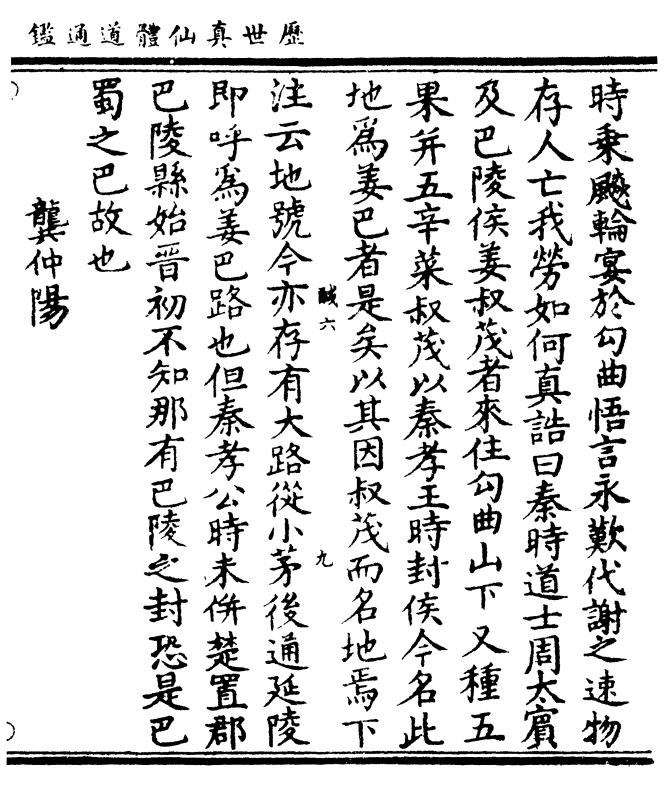 歷世真仙體道通鑑
時乗飈輪宴於勾曲悟言永歎代謝之速物
存人亡我勞如何真誥曰秦時道士周太賓
及巴陵侯姜叔茂者來住勾曲山下又種五
果并五辛菜叔茂以秦孝王時封侯今名此
地爲姜巴者是矣以其因叔茂而名地焉下
醎六 九
注云地號今亦存有大路從小茅後通延陵
即呼爲姜巴路也但秦孝公時未併楚置郡
巴陵縣始晋初不知那有巴陵之封恐是巴
蜀之巴故也
龔仲陽